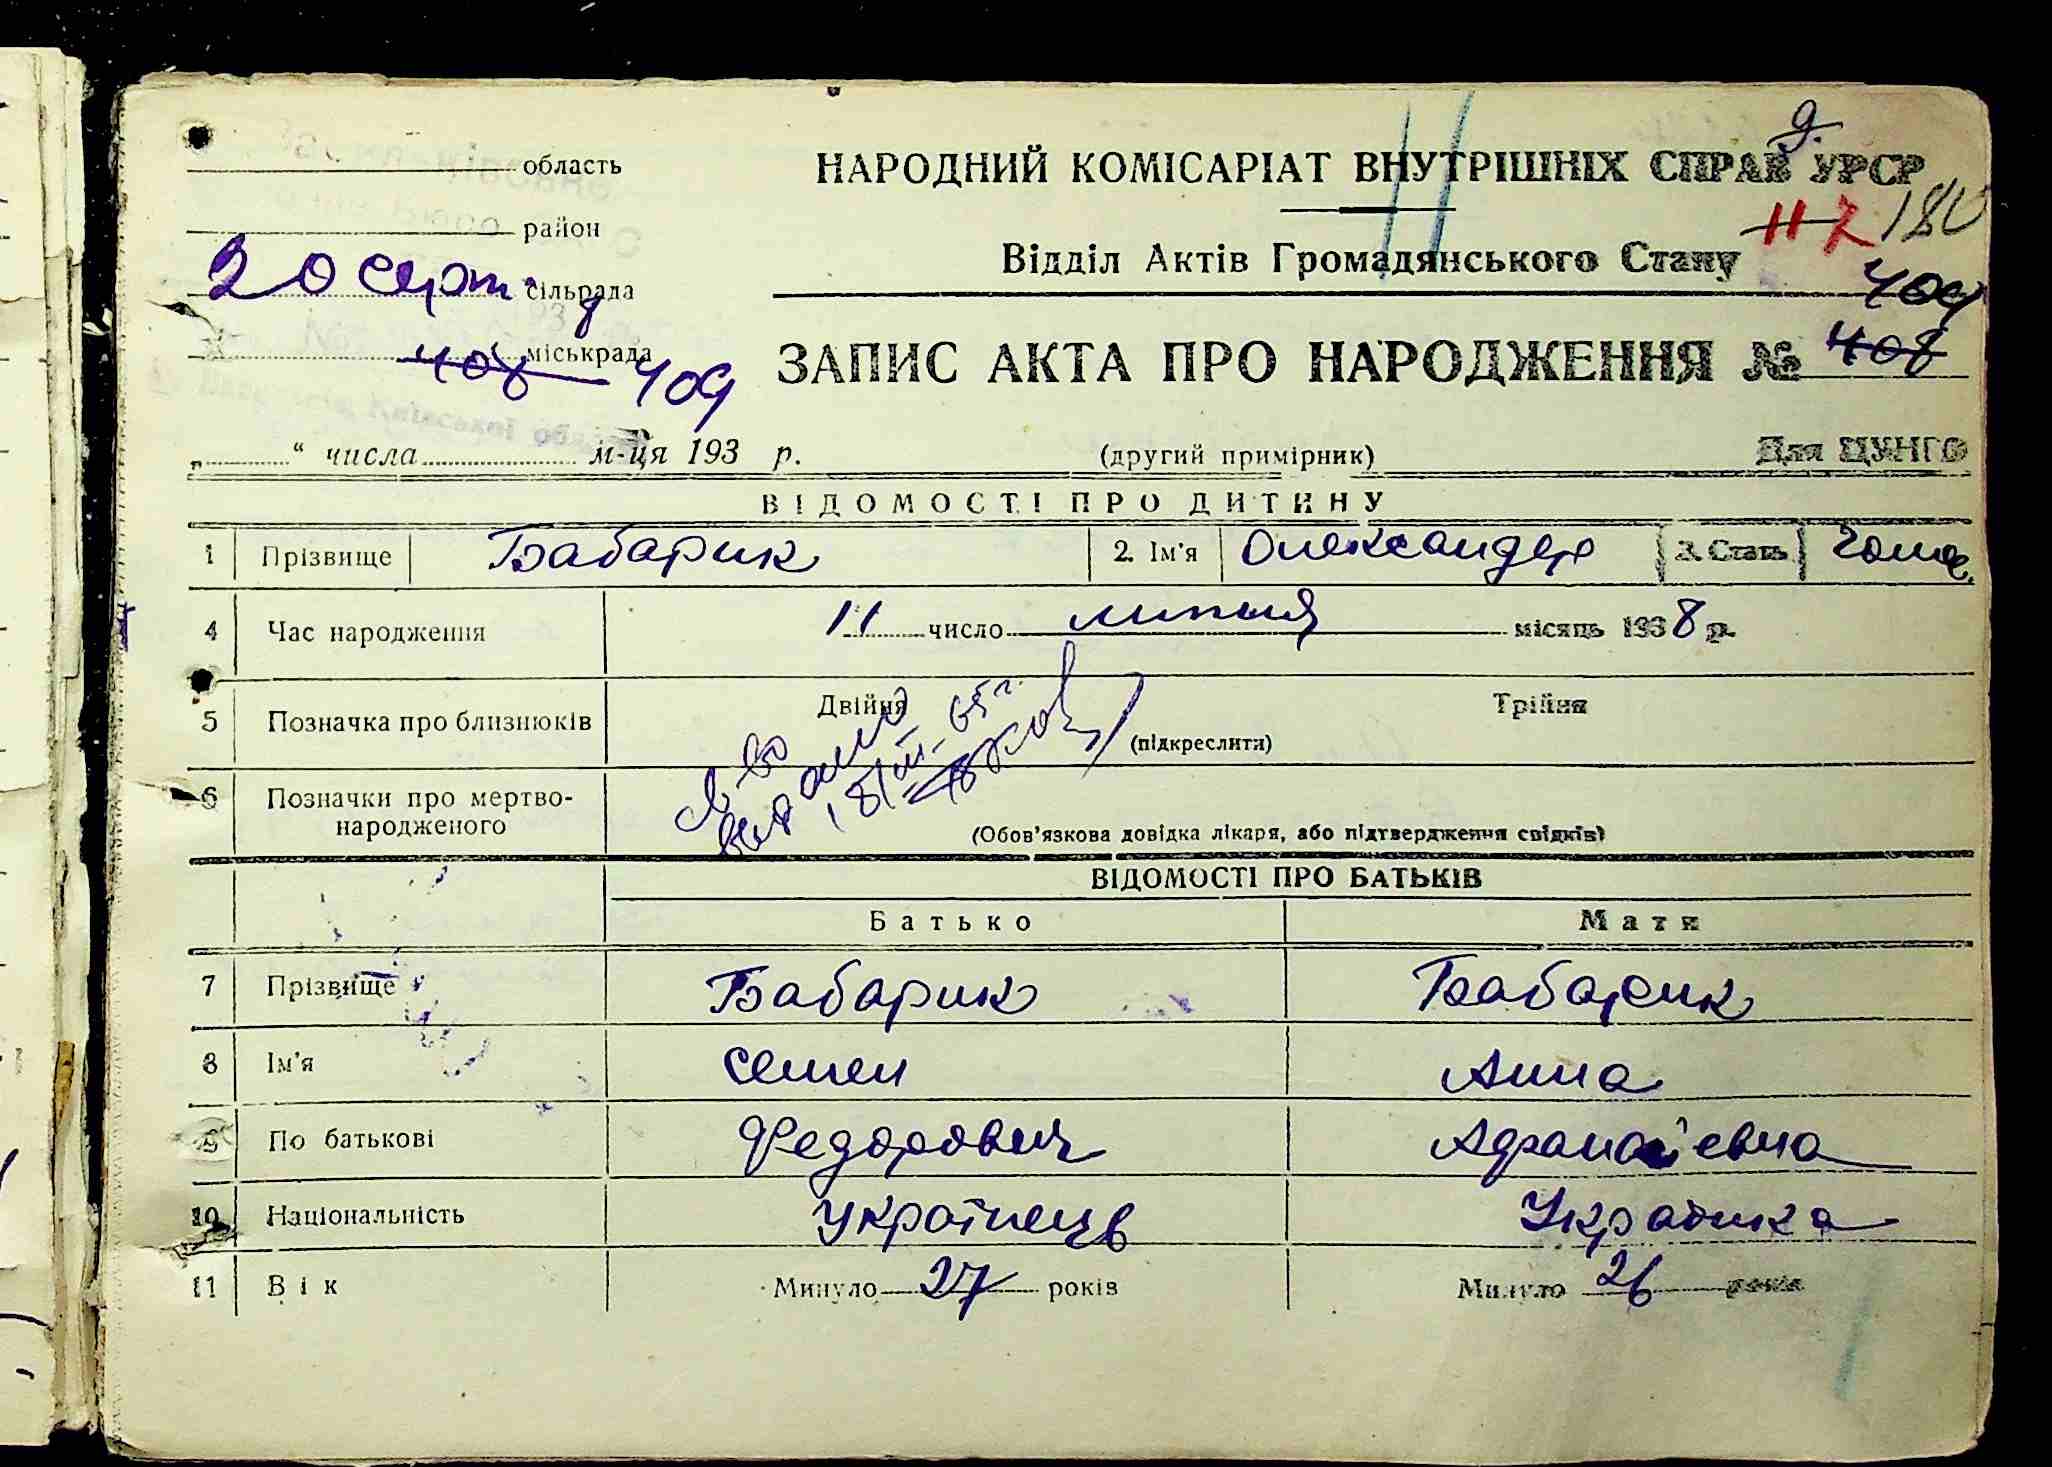 область
район
20 серп. сільрада 8
міськрада
408 409
НАРОДНИЙ КОМІСАРІАТ ВНУТРІШНІХ СПРАВ УРСР
117 180
Відділ Актів Громадянського Стану
409
ЗАПИС АКТА ПРО НАРОДЖЕННЯ № 408
„ “ числа м-ця 193 р. (другий примірник) Для ЦУНГО
ВІДОМОСТІ ПРО ДИТИНУ
1 Прізвище Бабарик 2. Ім'я Олександер 3. Стать Чолов.
4 Час народження 11 число липня місяць 1938 р.
5 Позначка про близнюків Двійня Трійня
(підкреслити)
св-во
18/III-65 г.
6 Позначки про мертво-
народженого
(Обов'язкова довідка лікаря, або підтвердження свідків)
ВІДОМОСТІ ПРО БАТЬКІВ
Батько Мати
7 Прізвище Бабарик Бабарик
8 Ім'я Семен Анна
9 По батькові Федорович
10 Національність Українець Українка
11 Вік Минуло 27 років Минуло 26 років